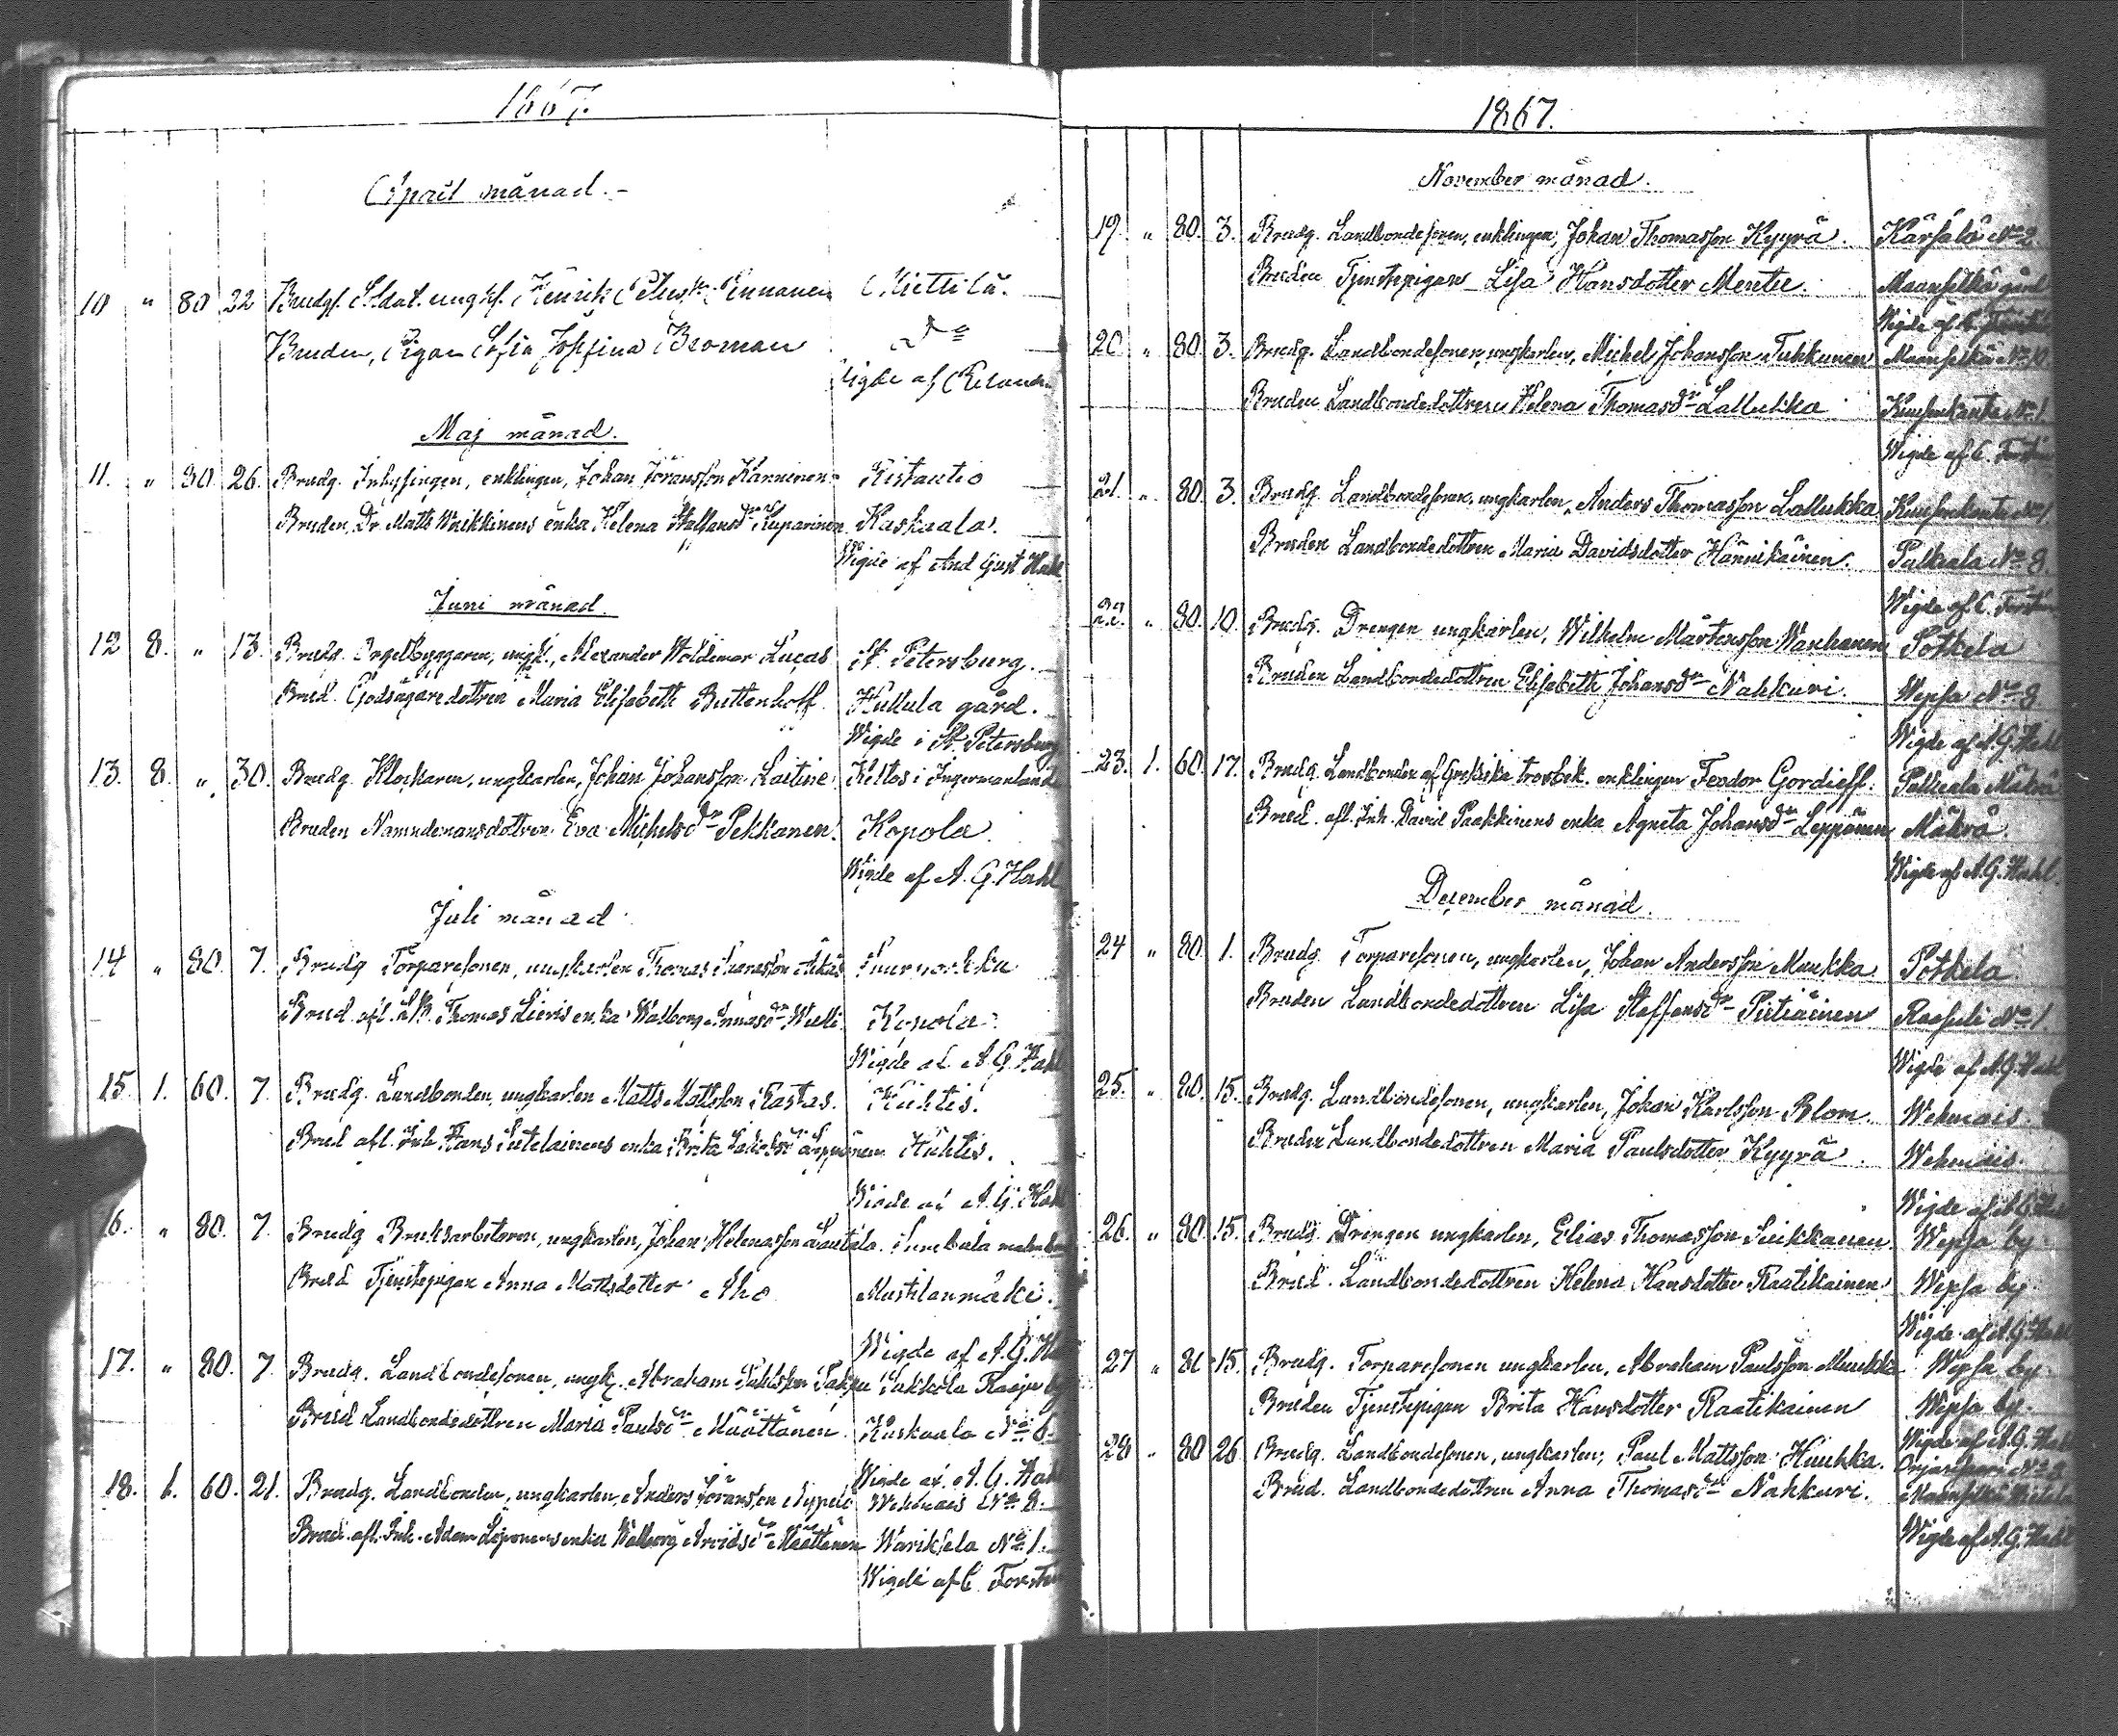 1867.
April månad.-
10 " 80 22 Brudg. Soldat. ungk. Henrik Ennonen
Bruden, Pigan Sofia Josefina Broman Do
Wigde af
Maj månad.
11. " 80 26. Brudg. Inhysingen, enklingen, Johan Göransson Karninen Ristautio
Bruden, Dr. Matts Waikkinens enka Helena Staffansdr Kuparinen Kaskaala.
Wigde af And Gust Hahl
Juni månad.
12 8. " 13. Brudg. Orgelbyggaren, ungk., Alexander Woldemar Lucas St. Petersburg.
Brud. Godsägaredottren Maria Elisabeth Buttenhoff Hullula gård.
Wigde i St. Petersburg
13. 8. " 30. Brudg. Klockaren, ungkarlen, Johan Johansson Laitine Keltos i Ingermanland
Bruden Nämndemansdottren Eva Michelsdr Pekkanen. Kopola.
Wigde af A. G. Hahl
Juli månad.
14 " 80. 7. Brudg Torparesonen, ungkarlen Thomas
Brud. afl. Thomas enka Walborg Kopola.
Wigde af A. G. Hahl
15. 1. 60. 7. Brudg. Landbonden, ungkarlen Matts Mattsson Rastas. Kuhtis.
Brud afl. Inh. Hans Sutelainens enka Brita Jakobsdr Kuhtis.
Wigde af A. G. Hahl
16. " 80. 7. Brudg Bruksarbetaren, ungkarlen, Johan Helenasson Lautala. Sumbula
Brud Tjenstepigan Anna Mattsdotter Aho Mustilanmäki.
Wigde af A. G. Hahl
17. " 80. 7. Brudg. Landbondesonen, ungk. Abraham
Brud Landbondedottren Maria Paulsdr Määttänen. Kaskaala No 6.
Wigde af A. G. Hahl
18. 1. 60. 21. Brudg. Landbonden, ungkarlen, Anders Göransson Wehmais No 8.
Brud. afl. Inh. Adam enka Walborg Määttänen Warikselа No 1.
Wigde af C. Forstén
1867.
November månad.
19. " 80. 3. Brudg. Landbondesonen, enklingen, Johan Thomasson Kyyrä. Kärsälä No 2
Bruden Tjenstepigan Lisa Hansdotter Mentu. Maanselkä gård
Wigde af C. Forstén
20 " 80. 3. Brudg. Landbondesonen, ungkarlen, Michel Johansson Tukkunen Maanselkä No 10.
Bruden Landbondedottren Helena Thomasdr Lallukka No 1.
Wigde af C. Forstén
21. " 80. 3. Brudg. Landbondesonen, ungkarlen, Anders Thomasson Lallukka No 1.
Bruden Landbondedottren Maria Davidsdotter Hännikäinen. Pulkala No 8.
Wigde af C. Forstén
22. " 80. 10. Brudg. Drengen ungkarlen, Wilhelm Mårtensson Wanhanen Potkela
Bruden Landbondedottren Elisabeth Johansdr Nahkuri. Wepsa No 8
Wigde af A. G. Hahl
23. 1. 60. 17. Brudg. Landbonden af Grekiska trosbek. enklingen Feodor Gordieff. Mäkrä
Brud. afl. Inh. David Paakkinens enka Agneta Johansdr Leppänen Mäkrä.
Wigde af A. G. Hahl.
December månad.
24 " 80. 1. Brudg. Torparesonen, ungkarlen, Johan Andersson Muukka Potkela
Bruden Landbondedottren Lisa Staffansdr Pietiäinen Raasuli No 1.
Wigde af A. G. Hahl
25. " 80. 15. Brudg. Landbondesonen, ungkarlen, Johan Karlsson Blom. Wehmais.
Bruden Landbondedottren Maria Paulsdotter Kyyrä. Wehmais.
Wigde af A. G. Hahl
26. " 80. 15. Brudg. Drengen ungkarlen, Elias Thomasson Suikkanen Wepsa by
Brud. Landbondedottren Helena Hansdotter Raatikainen Wepsa by
Wigde af A. G. Hahl
27 " 80 15. Brudg. Torparesonen ungkarlen, Abraham Paulsson Muukka Wepsa by
Bruden Tjenstepigan Brita Hansdotter Raatikainen Wepsa by.
Wigde af A. G. Hahl
28 " 80 26 Brudg. Landbondesonen, ungkarlen, Paul Mattsson Huuhka.
Brud. Landbondedottren Anna Thomasdr Nahkuri.
Wigde af A. G. Hahl